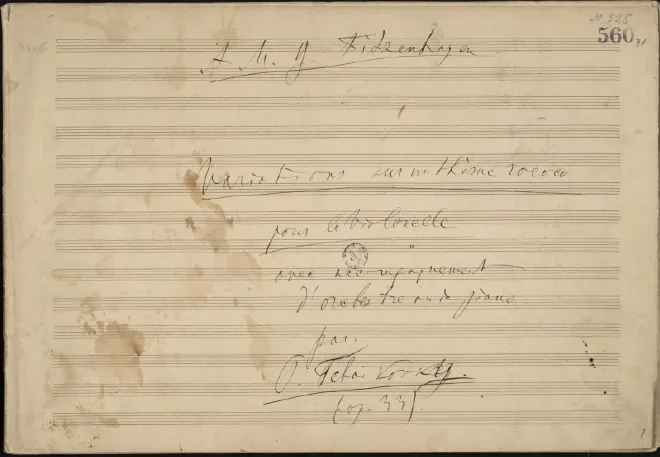 N 525
560,
A M. G. Fitzenhagen
Variations sur un thême rococo
pour le Violoncelle
avec accompagnement
d'orchestre ou de piano
par
P. Tchaikovsky.
(op. 33).
1